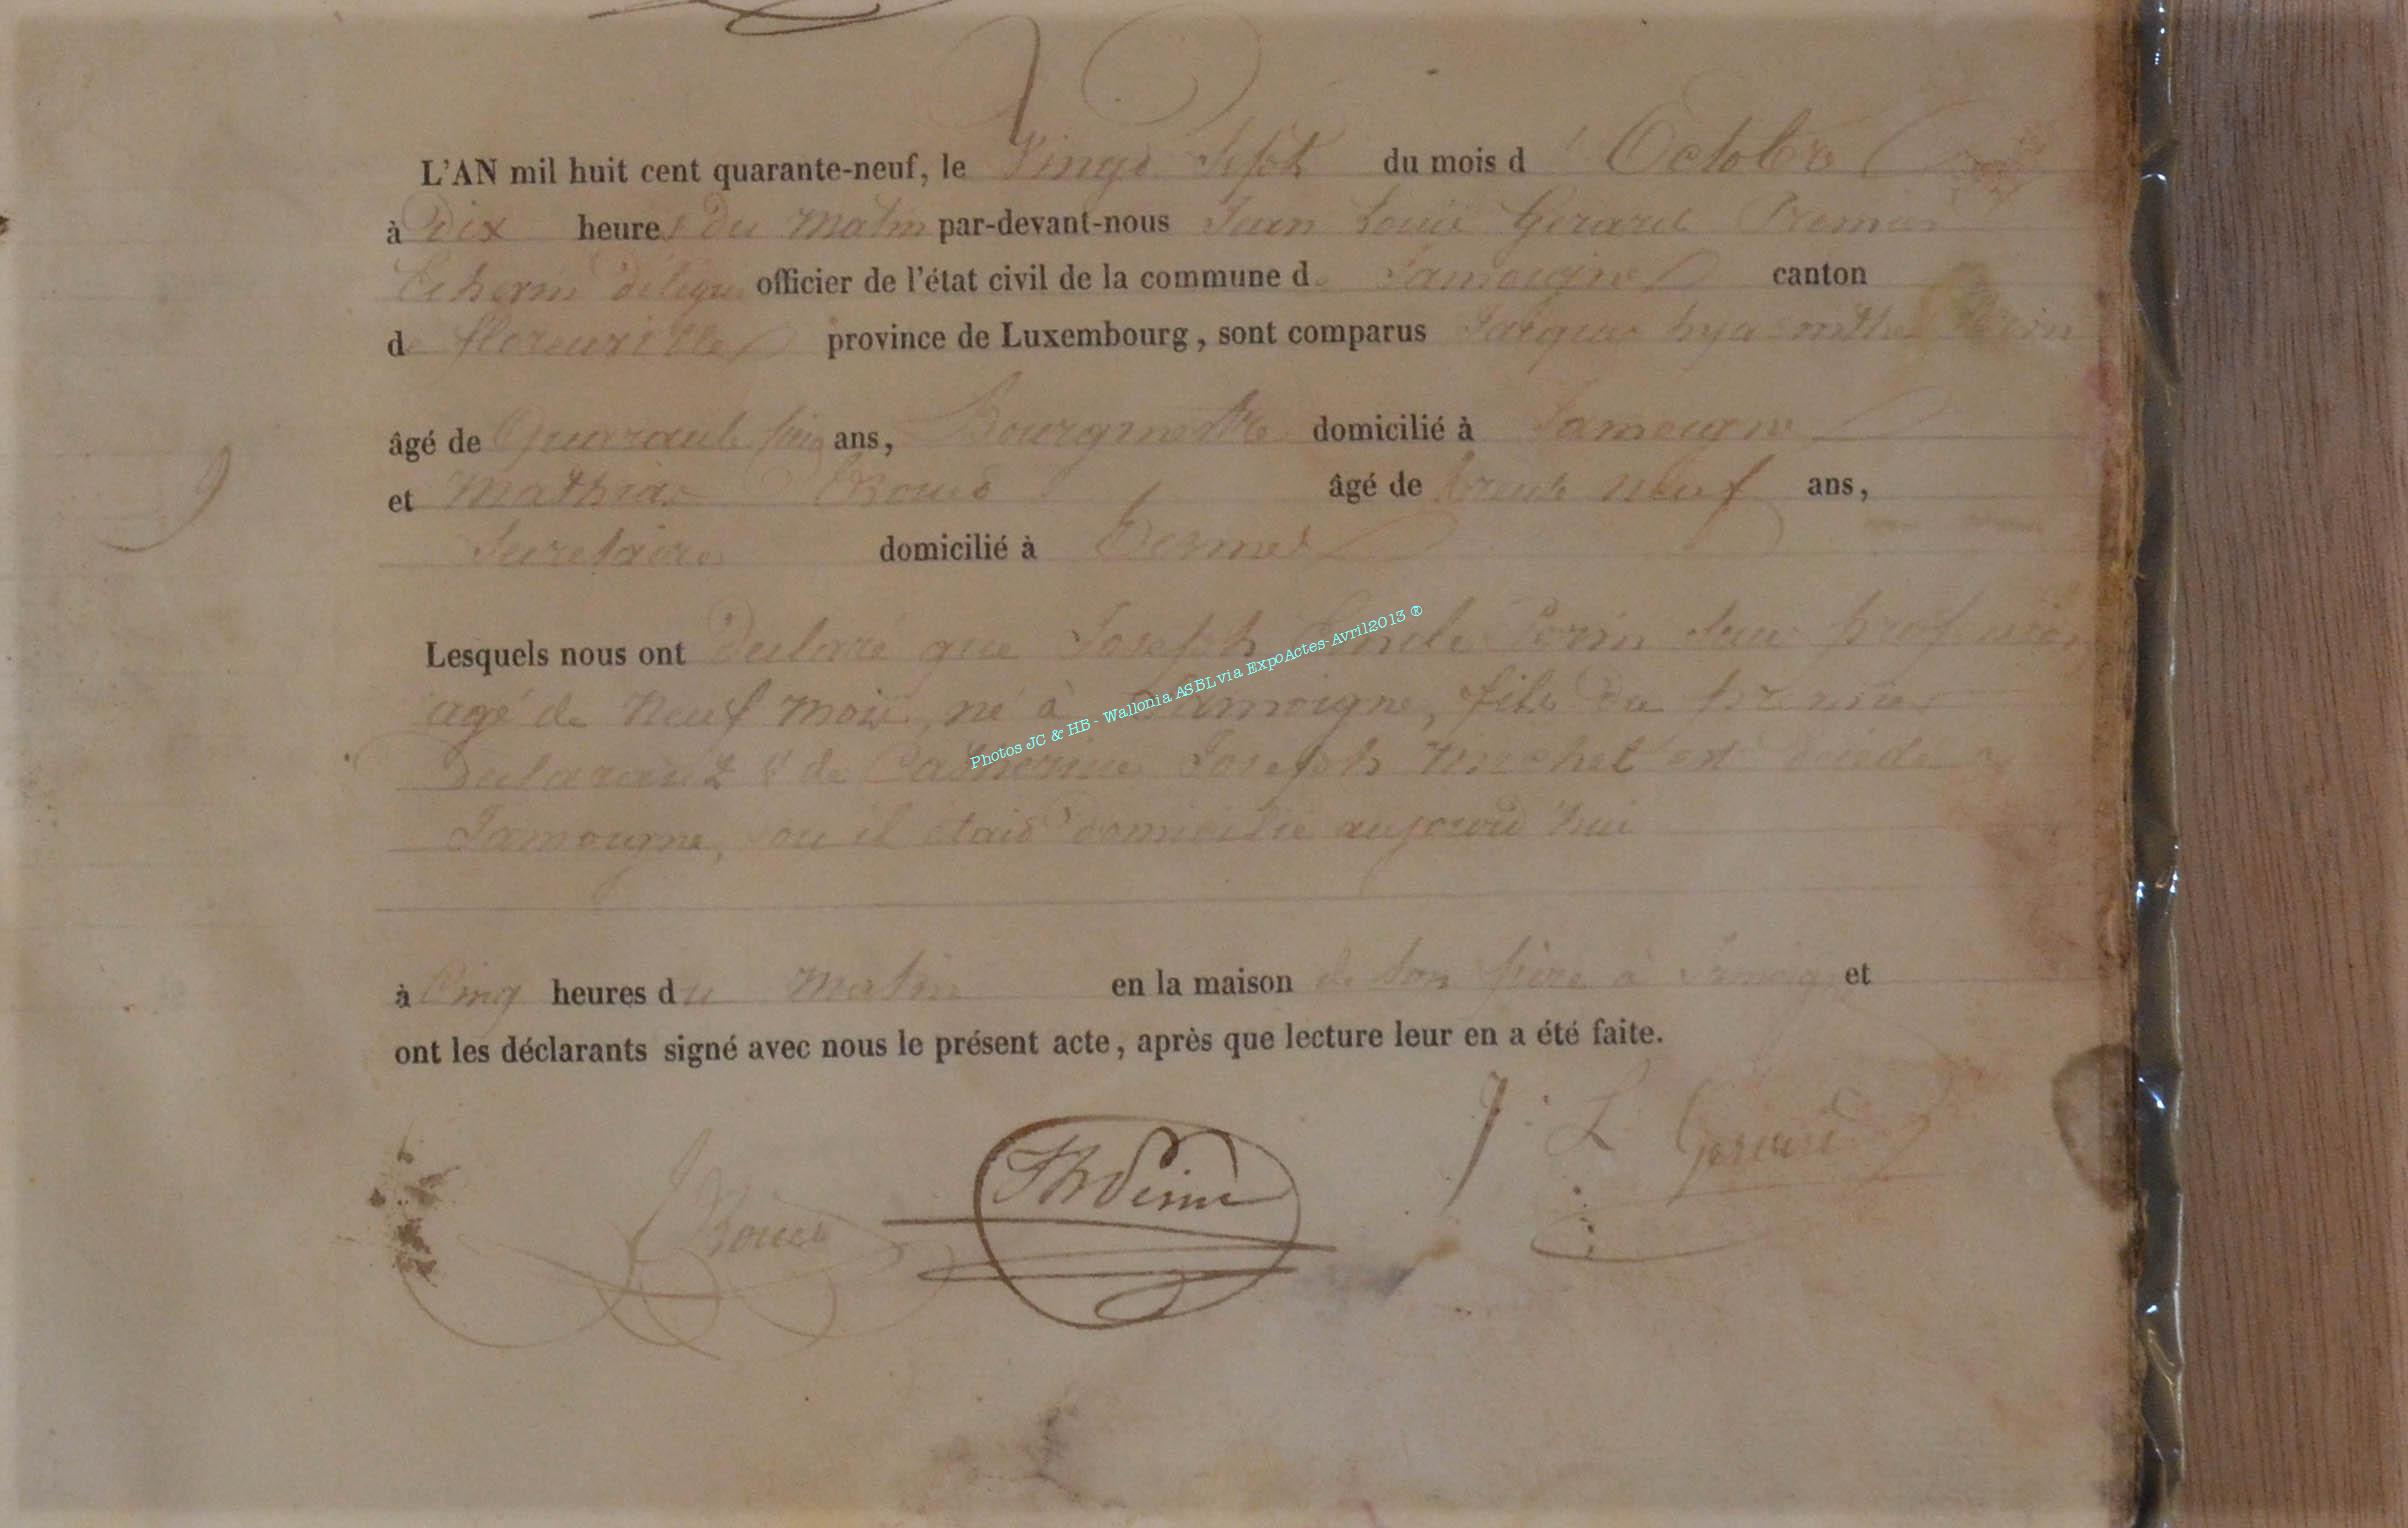 L'AN mil huit cent quarante-neuf, le Vingt Sept du mois d' Octobre
à Dix heures du matin par-devant-nous Jean Louis Gerard Premier
Echevin délégué officier de l'état civil de la commune de Jamoigne canton
de florenville province de Luxembourg, sont comparus Jacques hyacinthe Perin
âgé de Quarante ans, Bourgmestre domicilié à Jamoigne
et Mathias âgé de trente neuf ans,
Secretaire domicilié à Termes
Lesquels nous ont Declaré que Joseph Emile Perin
agé de Neuf mois, né à Jamoigne, fils du premier
Declarant & de Catherine Joseph Michel est décédé à
Jamoigne, ou il etait domicilié aujourd hui
à Cinq heures du matin en la maison de son père à Jamoigne et
ont les déclarants signé avec nous le présent acte, après que lecture leur en a été faite.
J. L Gerard
9
Photos JC & HB - Wallonia ASBL via ExpoActes-Avril2013 ®